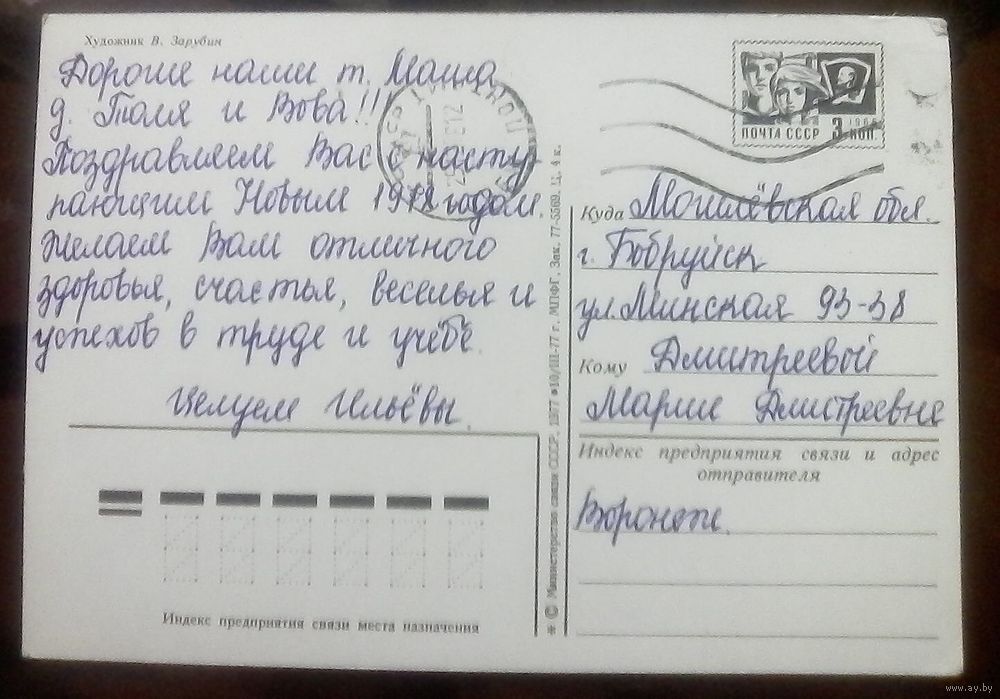 Художник В. Зарубин
Дорогие наши т. Маша,
д. Толя и Вова!!!
Поздравляем Вас с насту-
пающим Новым 1978 годом.
Желаем Вам отличного
здоровья, счастья, веселья и
успехов в труде и учёбе.
Целуем Ильёвы.
Индекс предприятия связи места назначения
* © Министерство связи СССР, 1977 ● 10/III-77 г. МПФГ, Зак. 77-5569. Ц. 4 к.
ПОЧТА СССР 3 КОП.
1966
Куда Могилёвская обл.
г. Бобруйск
ул. Минская 93-38
Кому Дмитреевой
Марие Дмитреевне
Индекс предприятия связи и адрес
отправителя
Воронеж.
www.ay.by